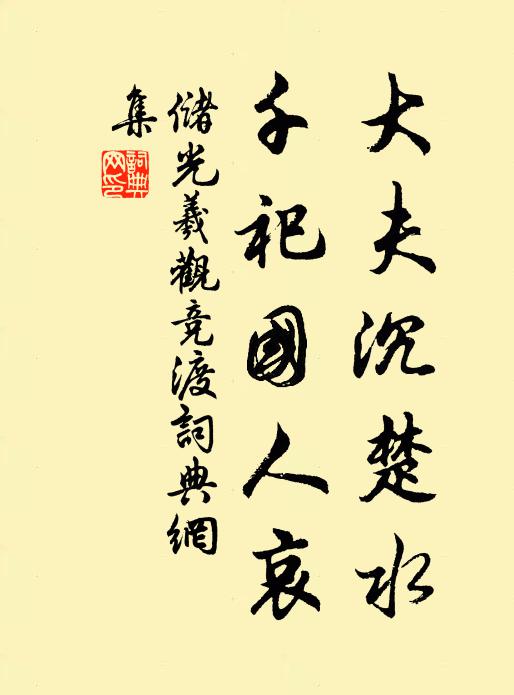 大夫沉楚水
千祀國人哀
儲光羲觀竞渡詞典網
集
詞典網印